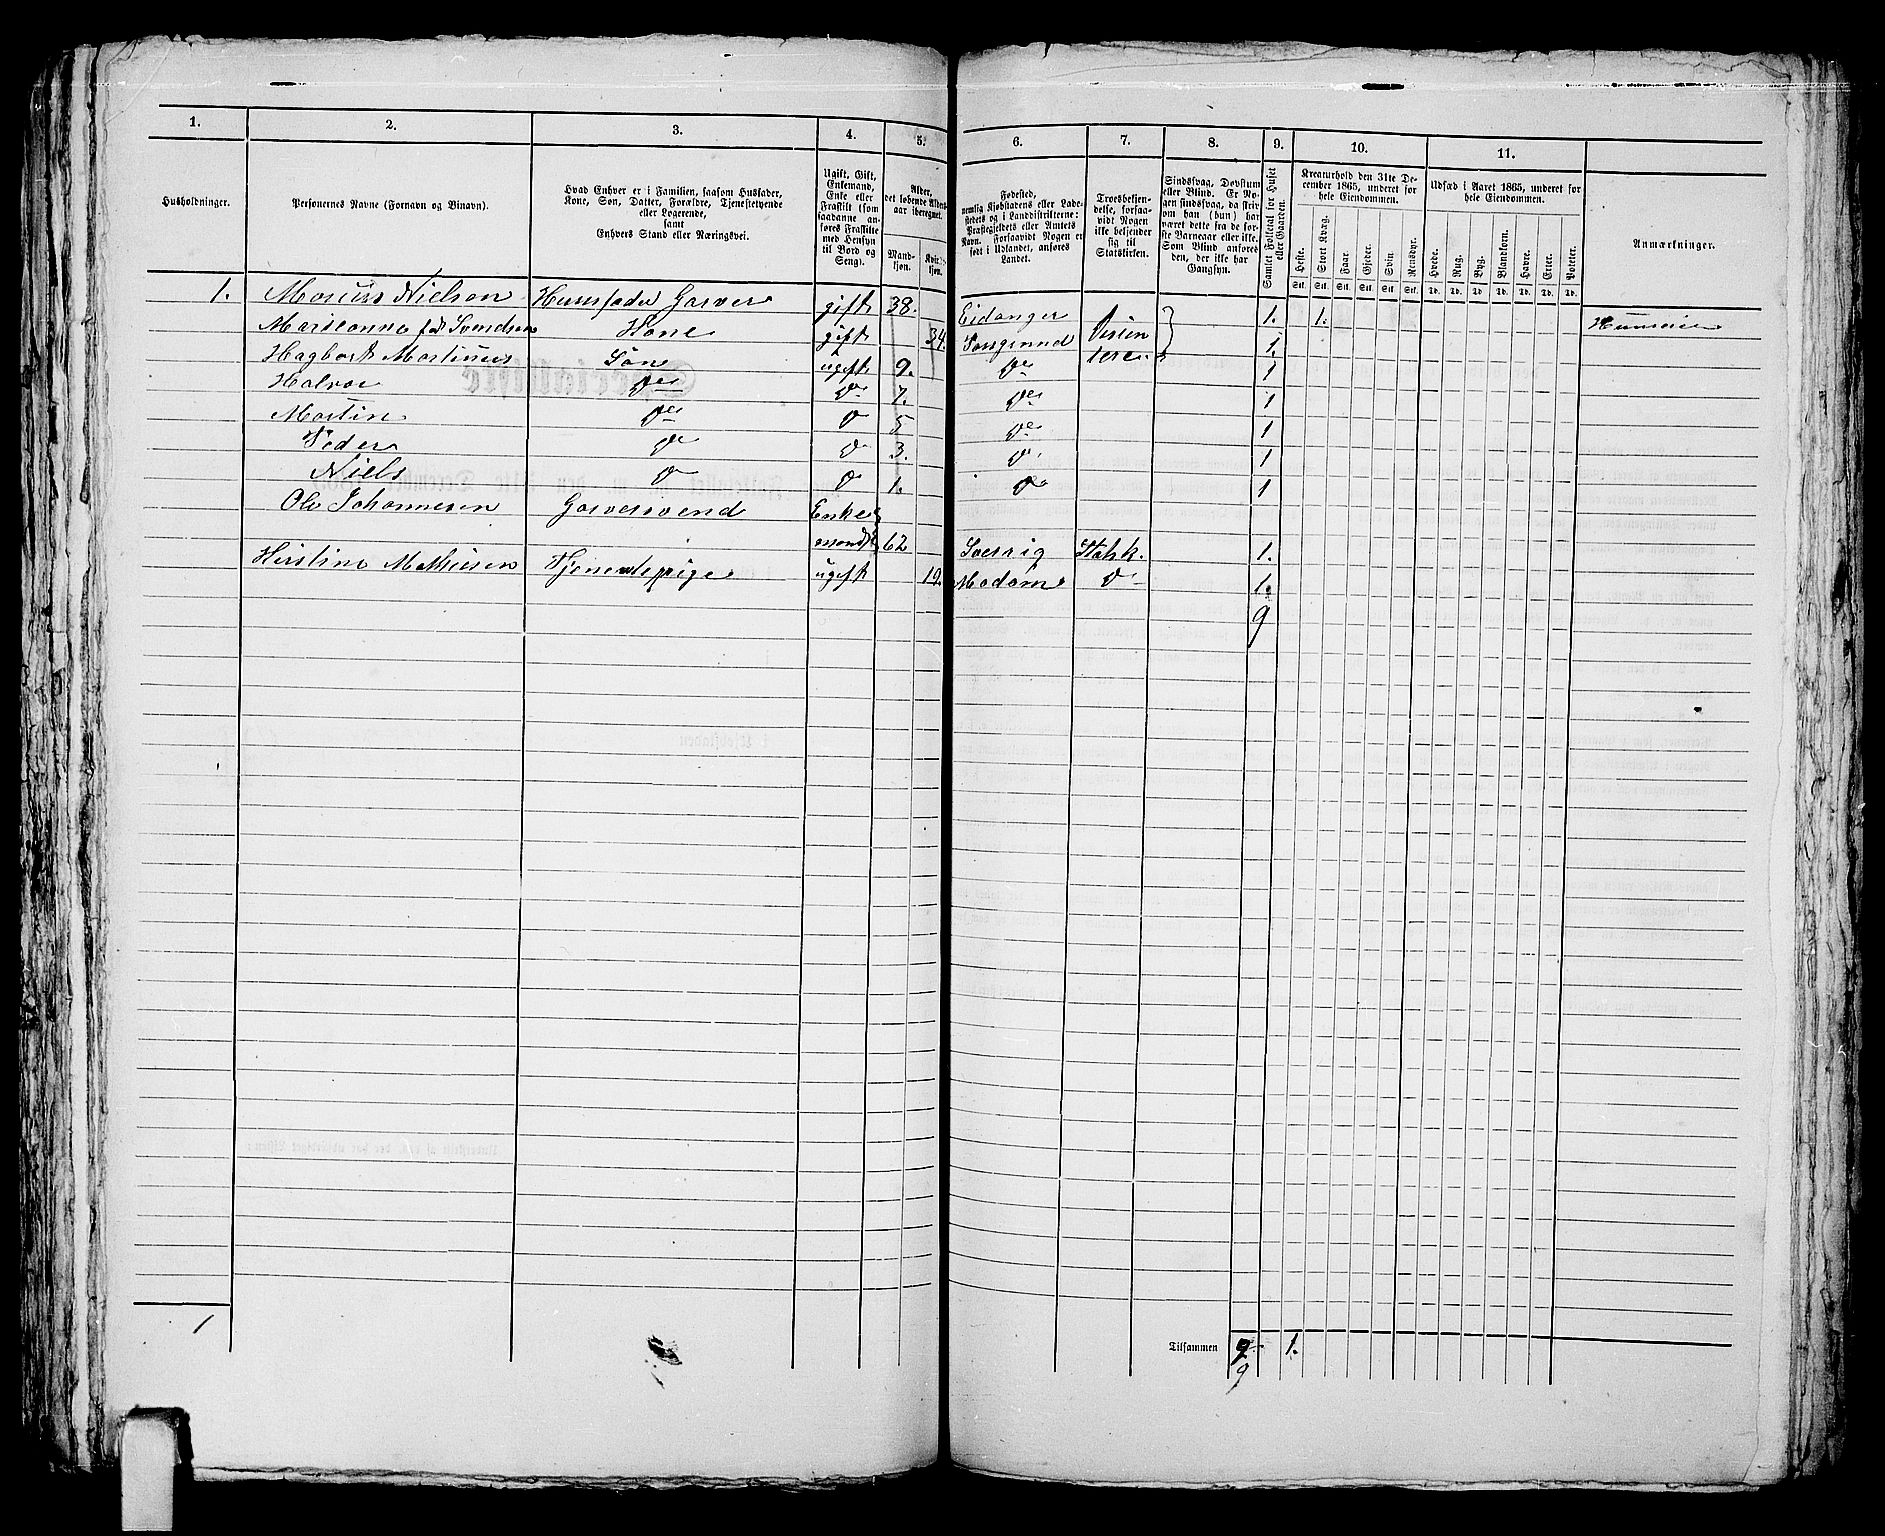 1. 2. 3. 4. 5. 6. 7. 8. 9. 10. 11.
Husholdninger.
Personernes Navne (Fornavn og Binavn).
Hvad Enhver er i Familien, saasom Husfader,
Kone, Søn, Datter, Forældre, Tjenestetyende
eller Logerende,
samt
Enhvers Stand eller Næringsvei.
Ugift, Gift,
Enkemand,
Enke eller
Fraskilt (som
saadanne an-
føres Fraskilte
med Hensyn
til Bord og
Seng).
Alder,
det løbende Alders-
aar iberegnet.
Mand-
kjøn.
Kvin-
kjøn.
Fødested,
nemlig Kjøbstadens eller Lade-
stedets og i Landdistrikterne:
Præstegjeldets eller Amtets
Navn. Forsaavidt Nogen er
født i Udlandet, anføres
Landet.
Troesbekjen-
delse, forsaa-
vidt Nogen
ikke bekjender
sig til
Statskirken.
Sindssvag, Døvstum
eller Blind. Er No-
gen sindssvag, da skriv
om han (hun) har
været dette fra de før-
ste Barneaar eller ikke.
Som Blind anføres
den, der ikke har
Gangsyn.
Samlet Folketal for Huset
eller Gaarden.
Kreaturhold den 31te De-
cember 1865, underet for
hele Eiendommen.
Heste. Stort Kvæg. Faar. Gjeder. Svin. Rensdyr.
Stk. Stk. Stk. Stk. Stk. Stk.
Udsæd i Aaret 1865, underet for
hele Eiendommen.
Hvede. Rug. Byg. Blandkorn. Havre. Erter. Poteter.
Td. Td. Td. Td. Td. Td. Td.
Anmærkninger.
1. Marius Nielsen Huusfader Garver gift 38. Eidanger 1. 1.
Marieanne fød Svendsen Kone gift 34. Porsgrund 1.
Hagbart Martinus Søn ugift 9. Do 1
Halvor Do Do 7. Do 1
Martin Do Do 5 Do 1
Peder Do Do 3. Do 1
Niels Do Do 1. Do 1
Ole Johannesen Garversvend Enke
mand 62 Sverrig Statsk. 1.
Kirstine Mathiesen Tjenestepige ugift 19. Do 1.
9
1
Tilsammen 9 1.
9